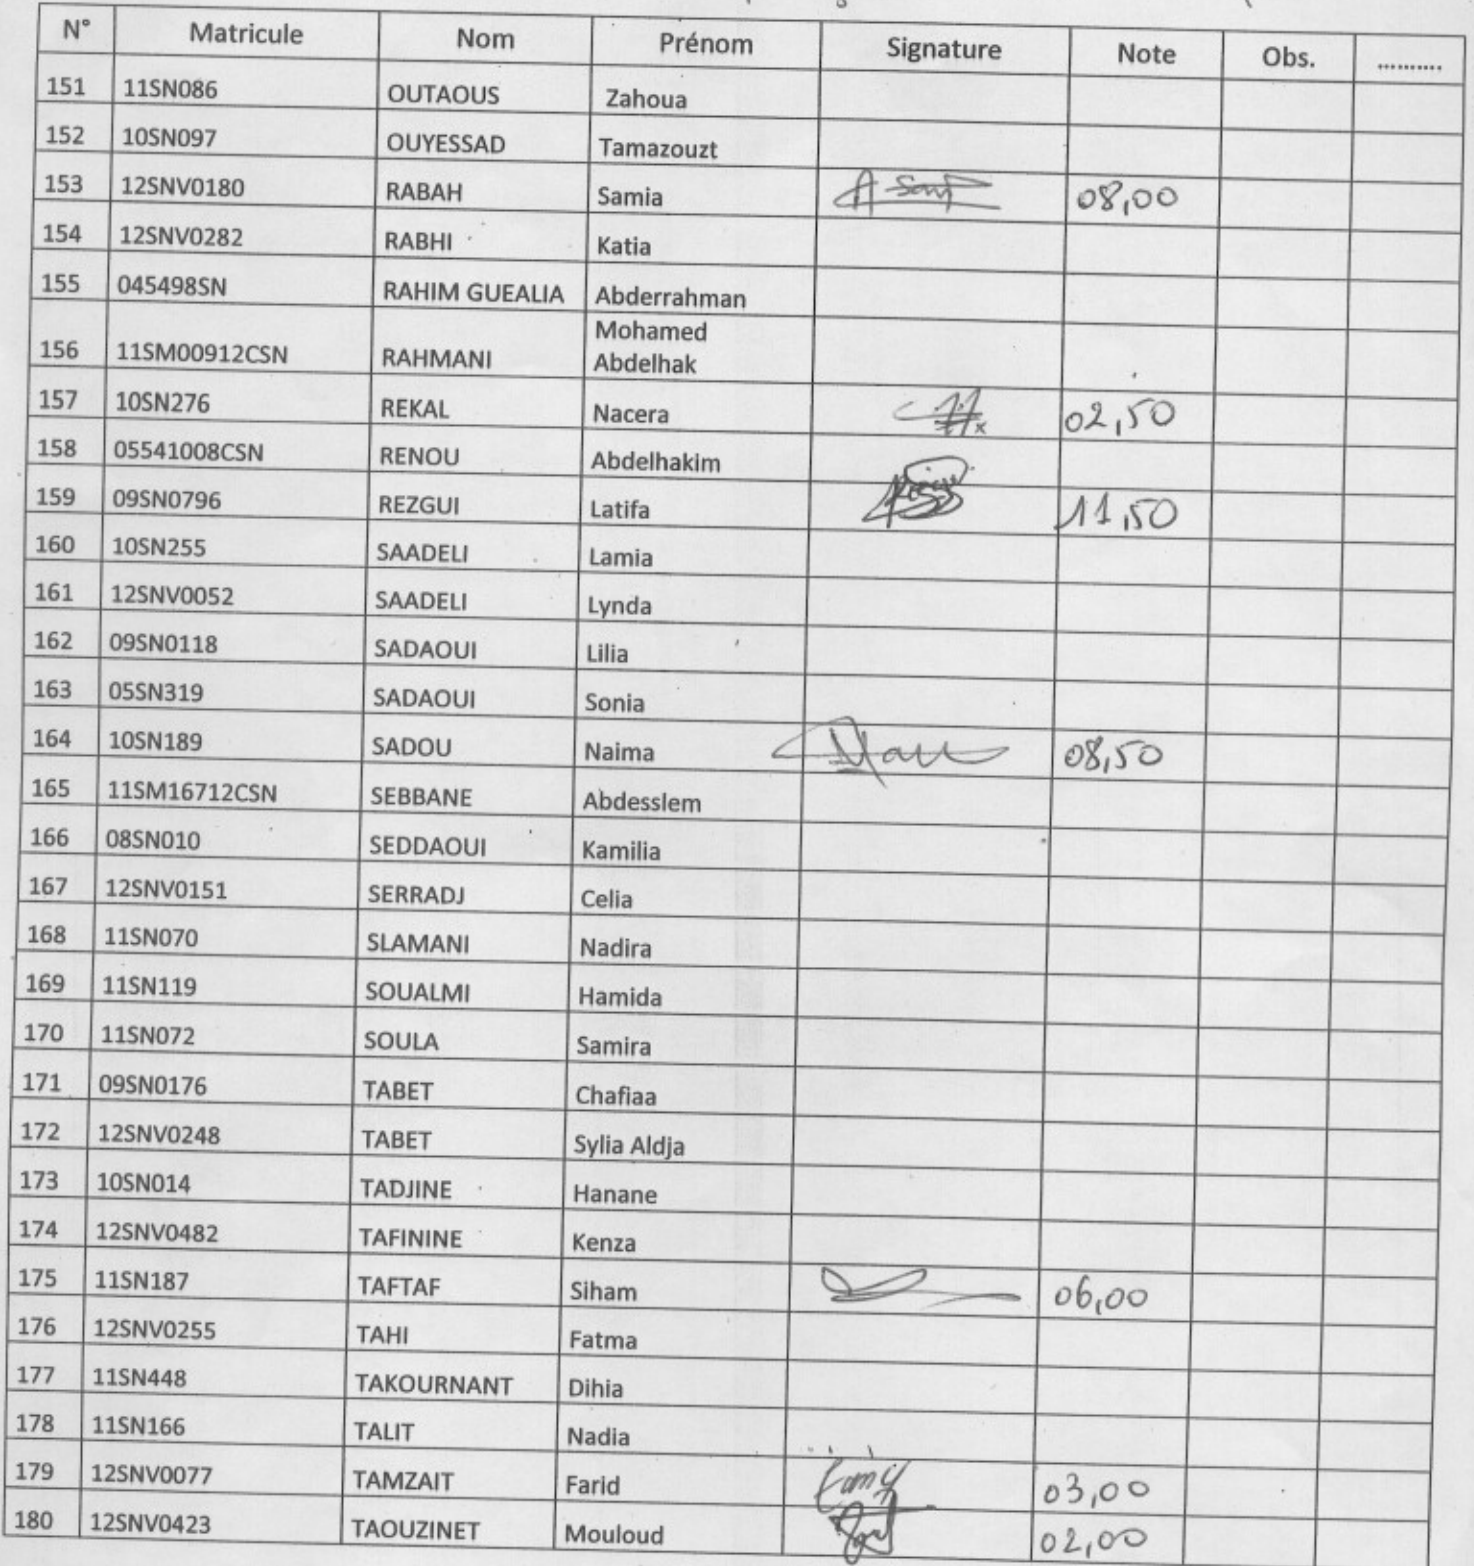 N° Matricule Nom Prénom Signature Note Obs. ..........
151 11SN086 OUTAOUS Zahoua
152 10SN097 OUYESSAD Tamazouzt
153 12SNV0180 RABAH Samia 08,00
154 12SNV0282 RABHI Katia
155 045498SN RAHIM GUEALIA Abderrahman
156 11SM00912CSN RAHMANI Mohamed
Abdelhak
157 10SN276 REKAL Nacera 02,50
158 05541008CSN RENOU Abdelhakim
159 09SN0796 REZGUI Latifa 11,50
160 10SN255 SAADELI Lamia
161 12SNV0052 SAADELI Lynda
162 09SN0118 SADAOUI Lilia
163 05SN319 SADAOUI Sonia
164 10SN189 SADOU Naima 08,50
165 11SM16712CSN SEBBANE Abdesslem
166 08SN010 SEDDAOUI Kamilia
167 12SNV0151 SERRADJ Celia
168 11SN070 SLAMANI Nadira
169 11SN119 SOUALMI Hamida
170 11SN072 SOULA Samira
171 09SN0176 TABET Chafiaa
172 12SNV0248 TABET Sylia Aldja
173 10SN014 TADJINE Hanane
174 12SNV0482 TAFININE Kenza
175 11SN187 TAFTAF Siham 06,00
176 12SNV0255 TAHI Fatma
177 11SN448 TAKOURNANT Dihia
178 11SN166 TALIT Nadia
179 12SNV0077 TAMZAIT Farid 03,00
180 12SNV0423 TAOUZINET Mouloud 02,00